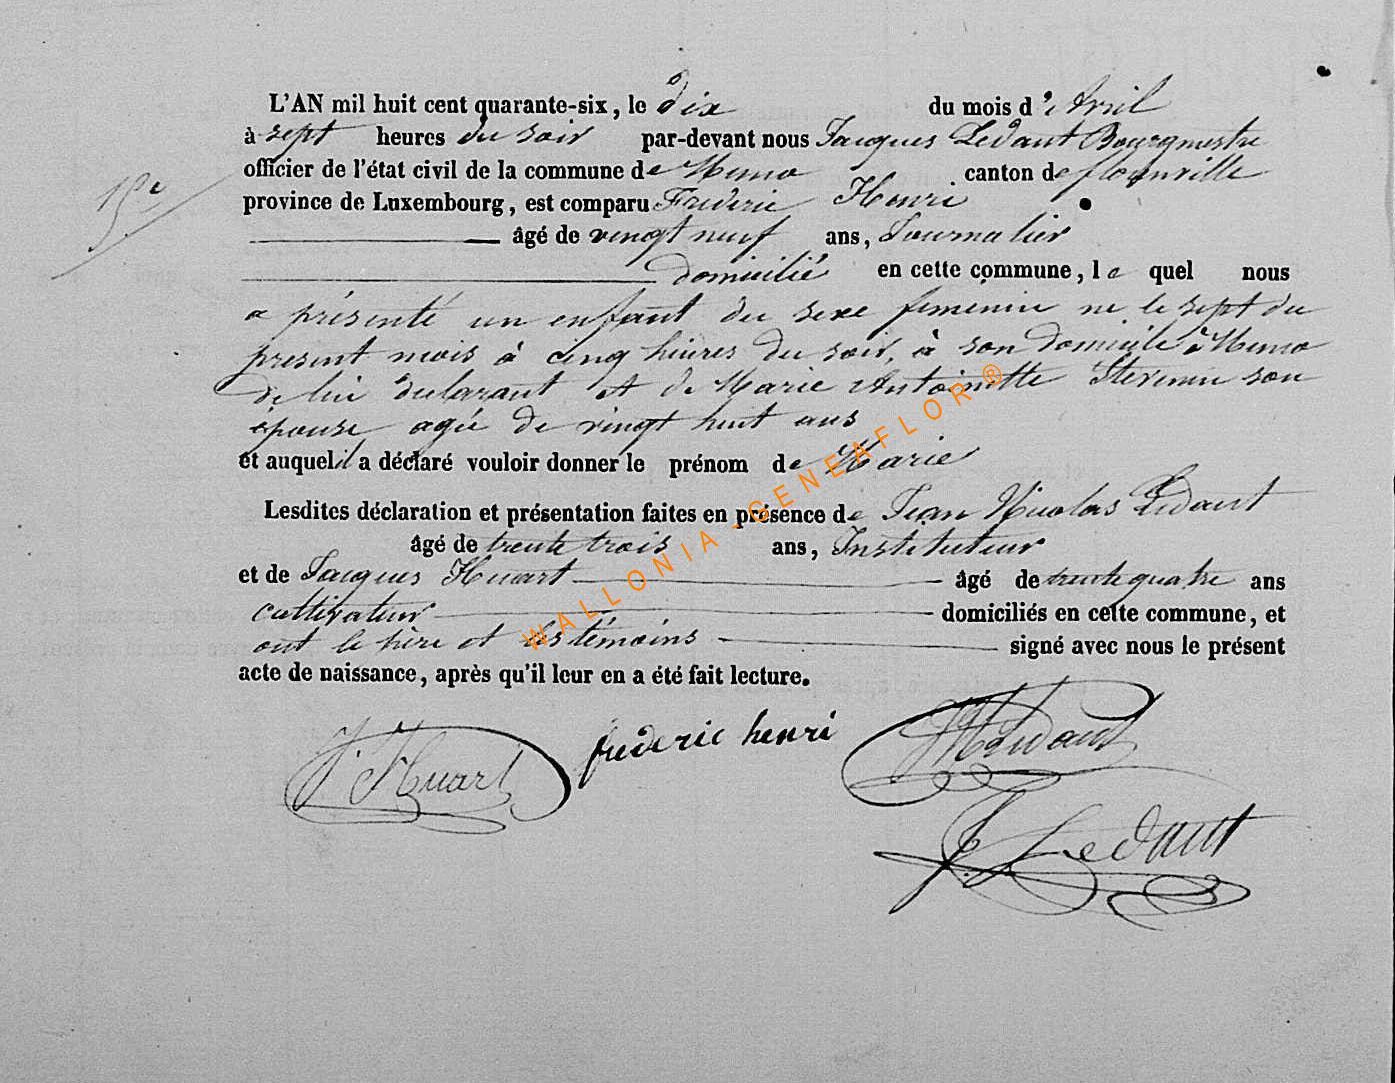 L'AN mil huit cent quarante-six, le dix du mois d'Avril
à sept heures du soir par-devant nous Jacques Ledant Bourgmestre
officier de l'état civil de la commune de Muno canton de florenville
15e
province de Luxembourg, est comparu Frederic Henri
âgé de vingt neuf ans, Journalier
domicilié en cette commune, le quel nous
a présenté un enfant du sexe feminin né le sept du
present mois à cinq heures du soir, à son domicile à Muno
de lui declarant et de Marie Antoinette Stevenin son
épouse agée de vingt huit ans
et auquel il a déclaré vouloir donner le prénom de Marie
Lesdites déclaration et présentation faites en présence de Jean Nicolas Ledant
âgé de trente trois ans, Instituteur
et de Jacques Huart âgé de trente quatre ans
cultivateur domiciliés en cette commune, et
ont le père et les témoins signé avec nous le présent
acte de naissance, après qu'il leur en a été fait lecture.
J. Huart frederic henri JN Ledant
J. Ledant
WALLONIA-GENEAFLOR®